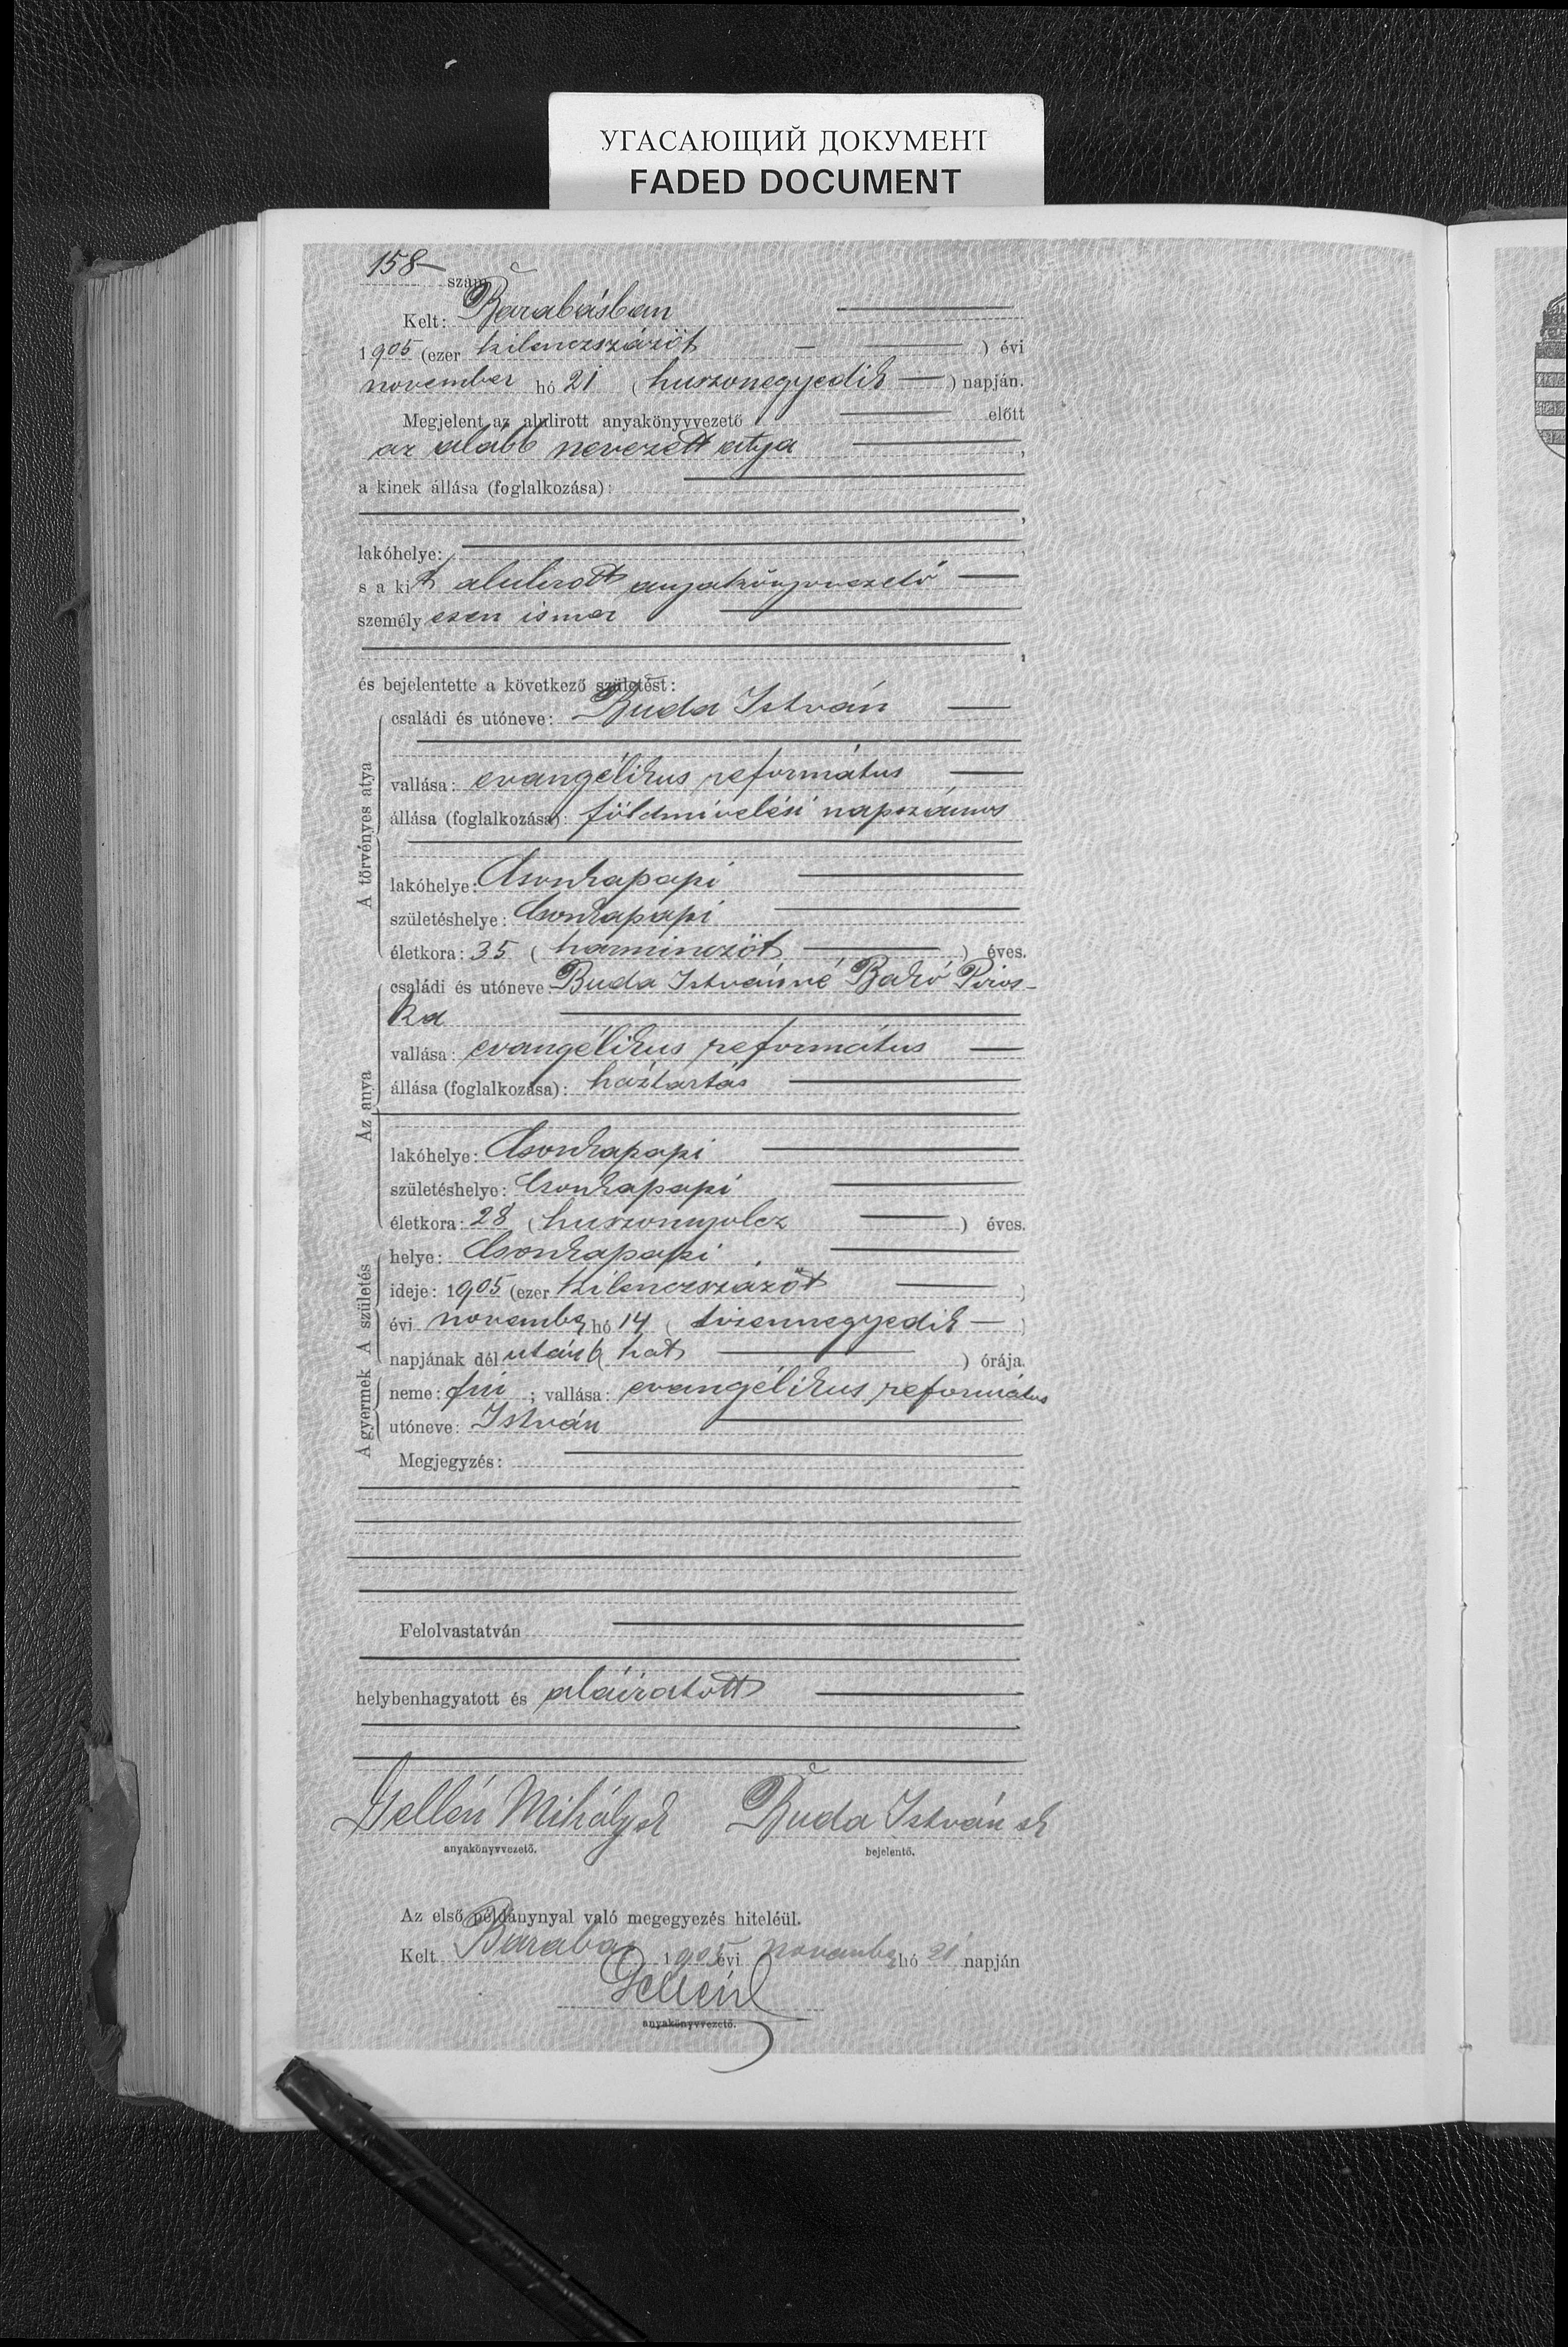 УГАСАЮЩИЙ ДОКУМЕНТ
FADED DOCUMENT
158 szám
Kelt: Barabásban
1905 (ezer kilenczszázöt ) évi
november hó 21 (huszonegyedik ) napján.
Megjelent az alulirott anyakönyvvezető előtt
az alább nevezett atya ,
a kinek állása (foglalkozása):
,
lakóhelye: ,
s a kit alulirott anyakönyvvezető
személyesen ismer
,
és bejelentette a következő születést:
A törvényes atya
családi és utóneve: Buda István
vallása: evangélikus református
állása (foglalkozása): földmivelési napszámos
lakóhelye: Csonkapapi
születéshelye: Csonkapapi
életkora: 35 (harminczöt ) éves.
Az anya
családi és utóneve: Buda Istvánné Bakó Piros-
ka
vallása: evangélikus református
állása (foglalkozása): háztartás
lakóhelye: Csonkapapi
születéshelye: Csonkapapi
életkora: 28 (huszonnyolcz ) éves.
A születés
helye: Csonkapapi
ideje: 1905 (ezer kilenczszázöt )
évi novembr hó 14 (tizennegyedik )
napjának délután 6 (hat ) órája.
A gyermek
neme: fiú ; vallása: evangélikus református
utóneve: István
Megjegyzés:
Felolvastatván
helybenhagyatott és aláiratott
Gellén Mihály sk Buda István sk
anyakönyvvezető. bejelentő.
Az első példánynyal való megegyezés hiteléül.
Kelt Barabás 1905 évi novembr hó 21 napján
Gellén
anyakönyvvezető.